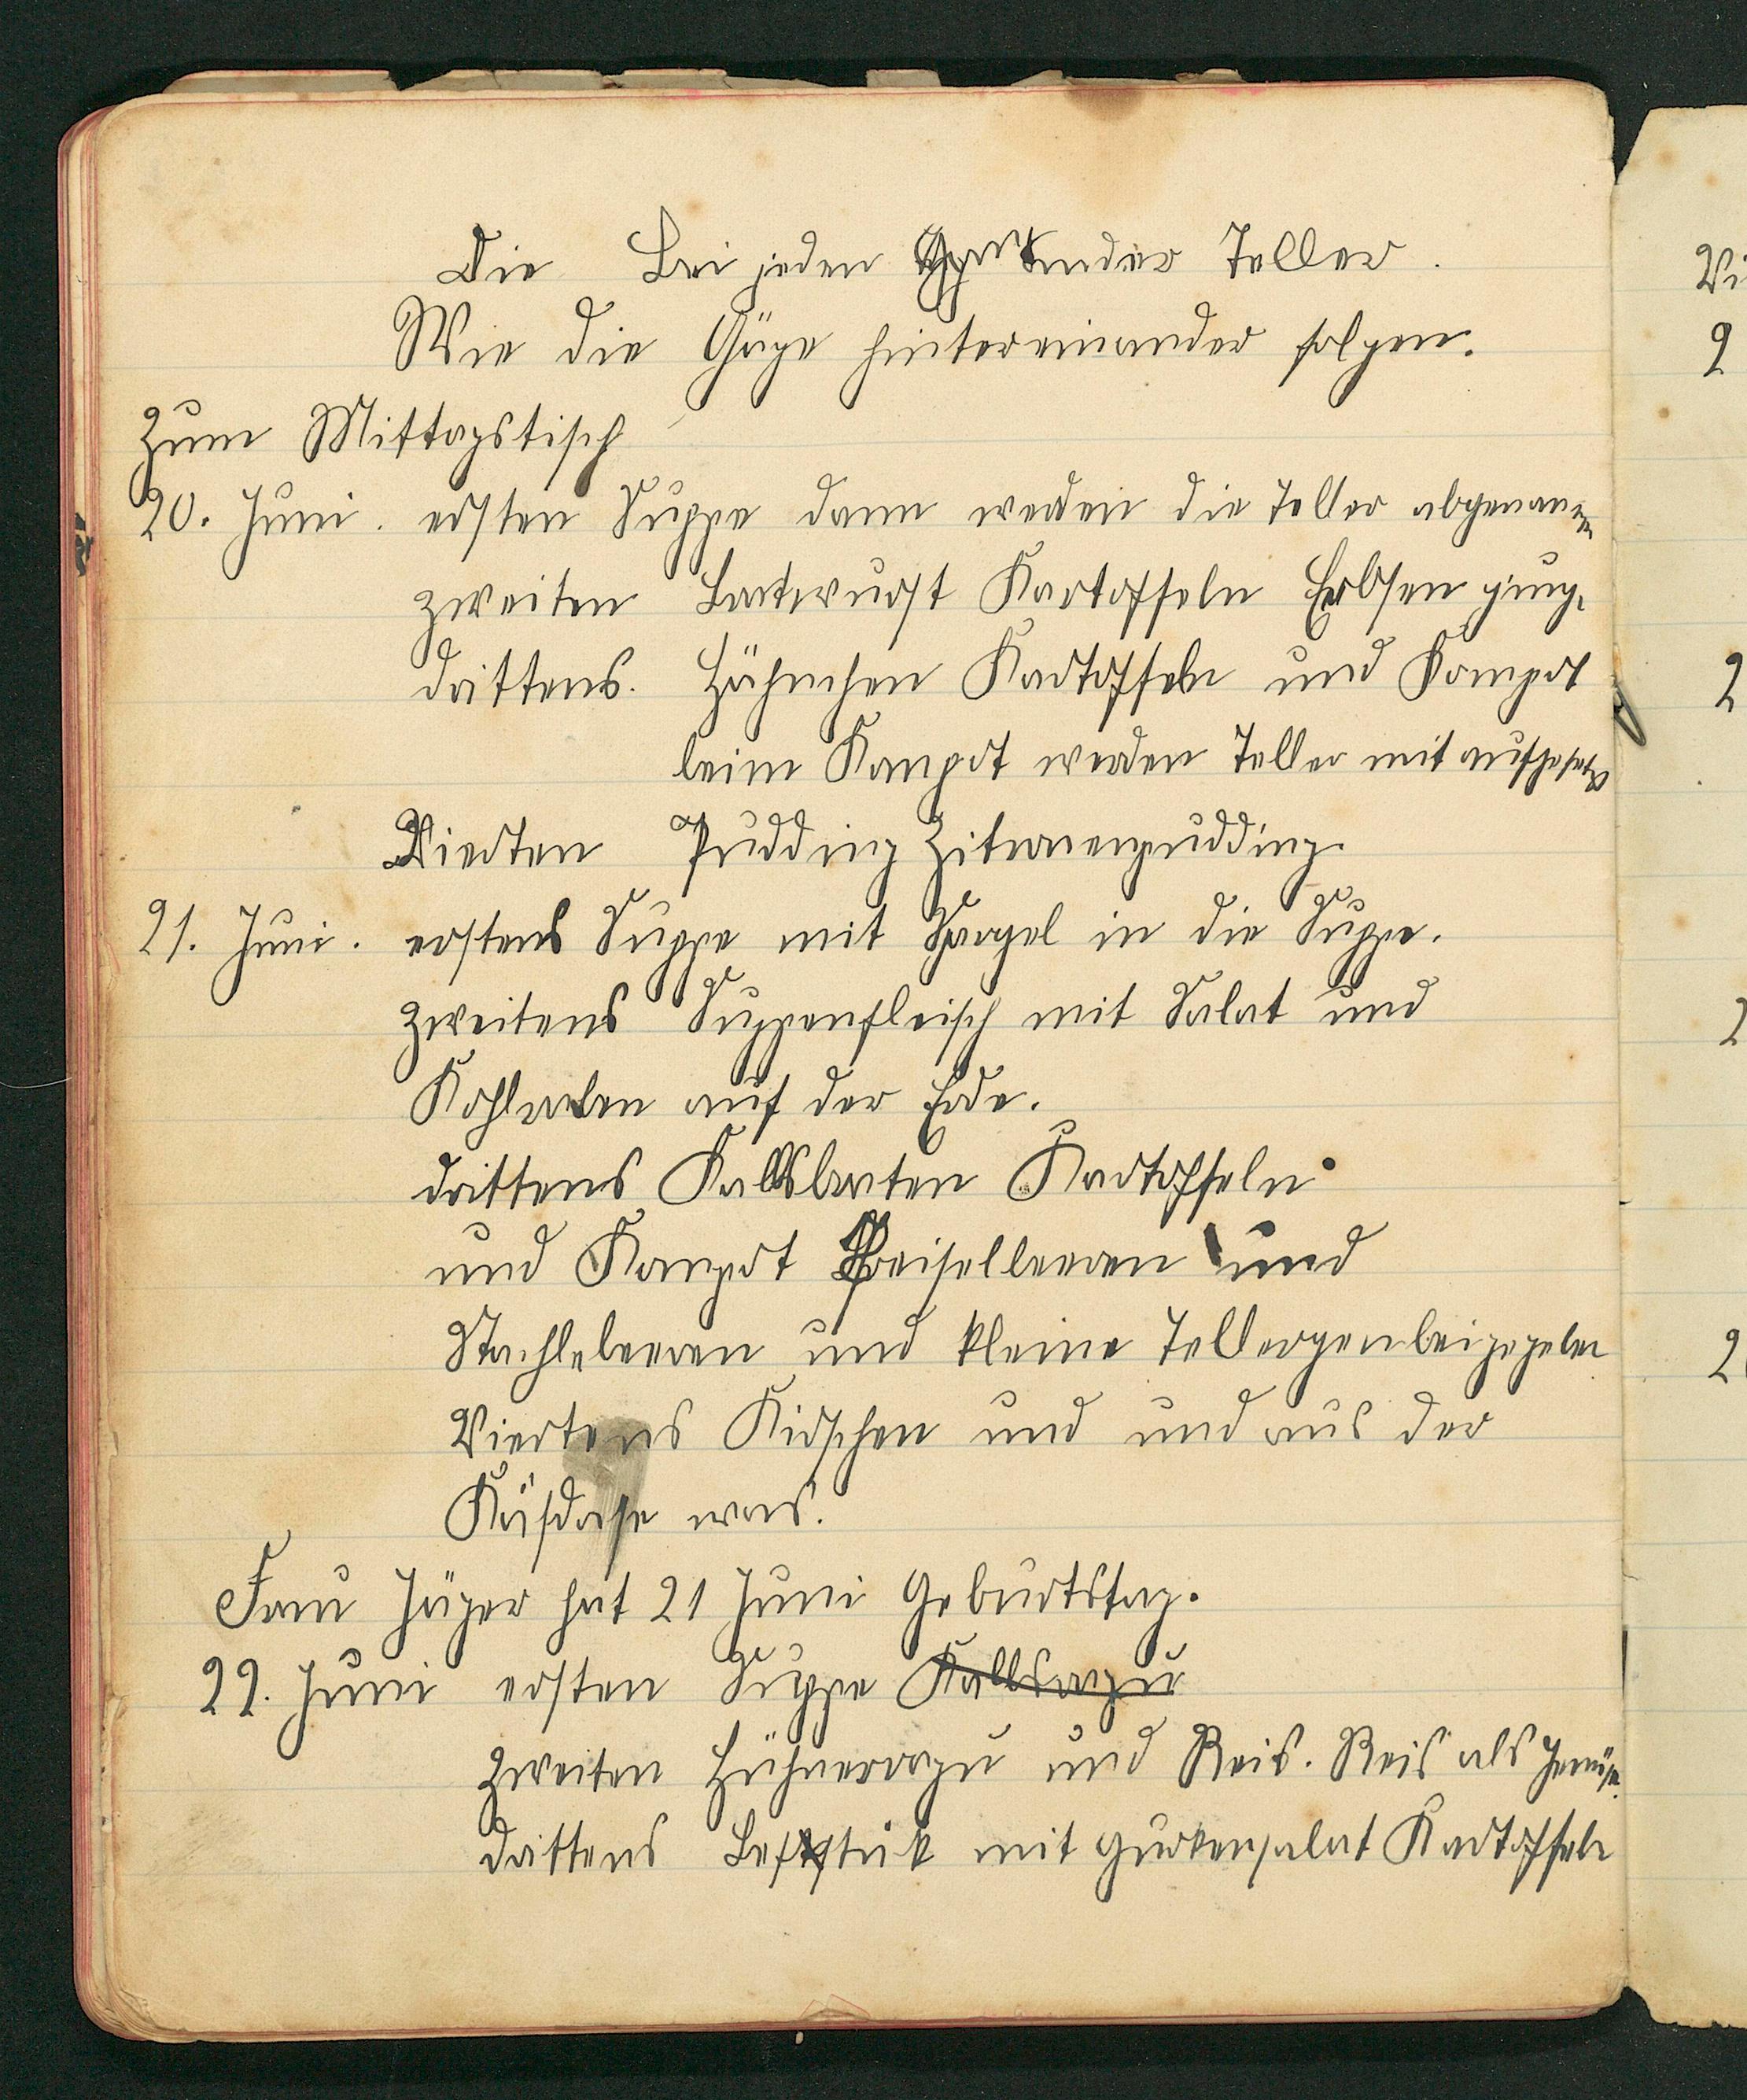 Die Bei jeden ander Teller.
Wie die Gäge hintereinander folgen.
Zum Mittagstisch
20. Juni. ersten Suppe dann werden die Teller abgenamen
zweiten Bratwurst Kartoffeln Erbsen
drittens. Hähnchen Kartoffeln und Kompot
beim Kompot werden Teller mit aufgesetz
Vierten Pudding Zitronenpudding.
21. Juni. erstens Suppe mit Spargel in die Suppe.
zweitens Suppenfleisch mit Salat und
Kohlraben auf der Erde.
drittens Kalbsbraten Kartoffeln
und Kompot Preiselbeeren und
Stachlebeeren und kleine Tellergen beigegeben
Viertens Kirschen und und aus der
Käsdose was.
Frau Jäger hat 21 Juni Geburtstag.
22. Juni ersten Suppe Kalbsragu
zweiten Hühnerragu und Reis. Reis als Gemüse.
drittens Befstük mit Gurkensalat Kartoffeln
Vi
2
2
2
2